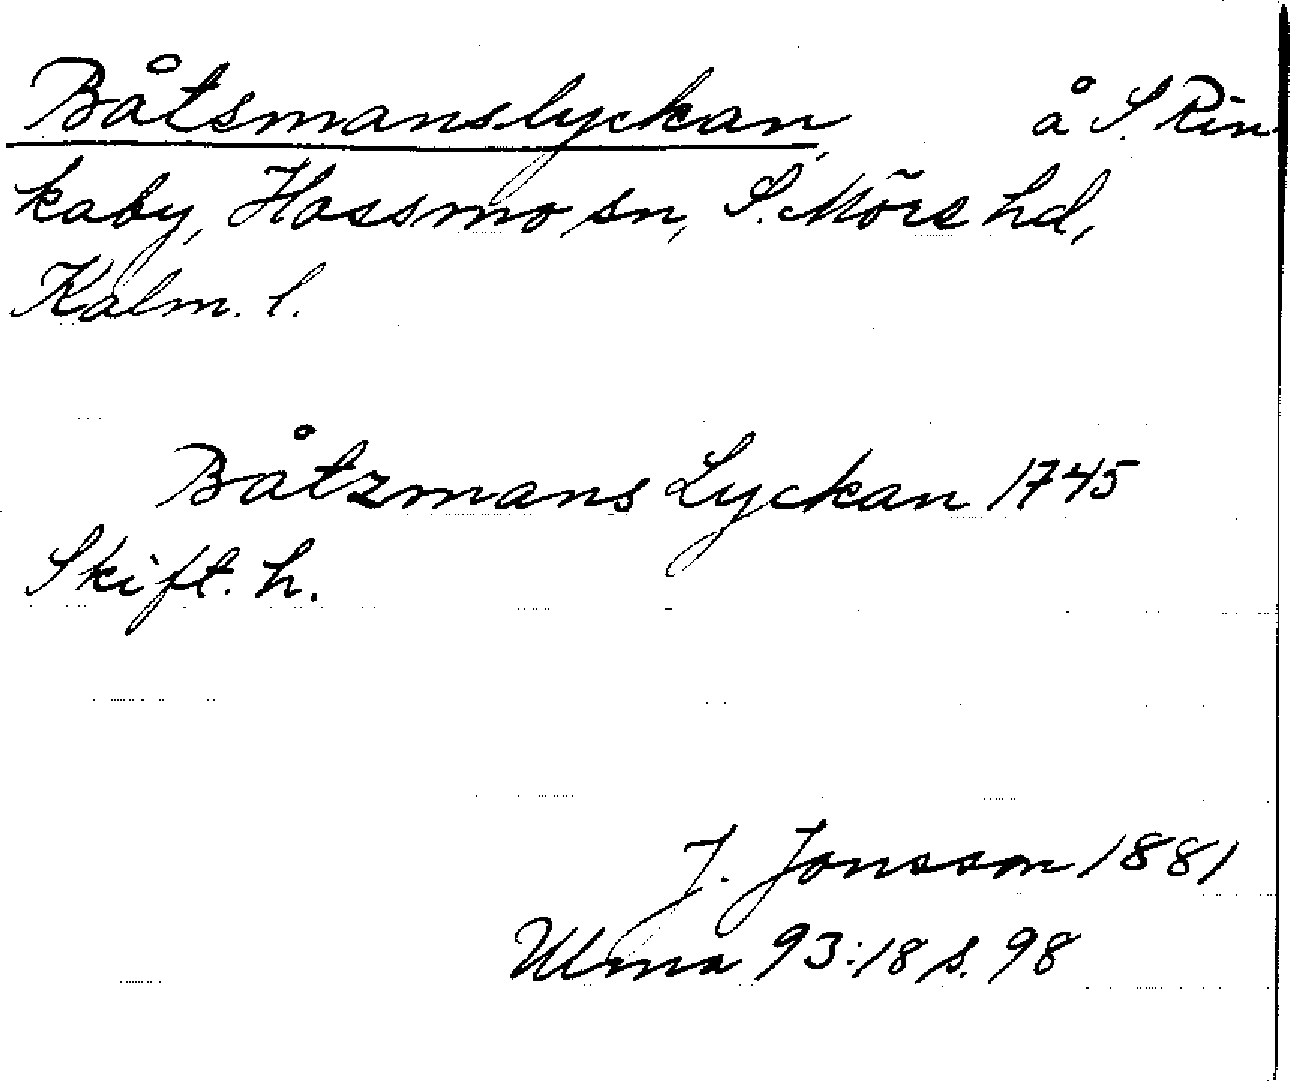 Båtsmanslyckan, å S. Rin
kaby, Hossmo sn, S. Möre hd,
Kalm. l.
Båtzmans Lyckan 1745
Skift. h.
J. Jonsson 1881
Ulma 93:18 s. 98